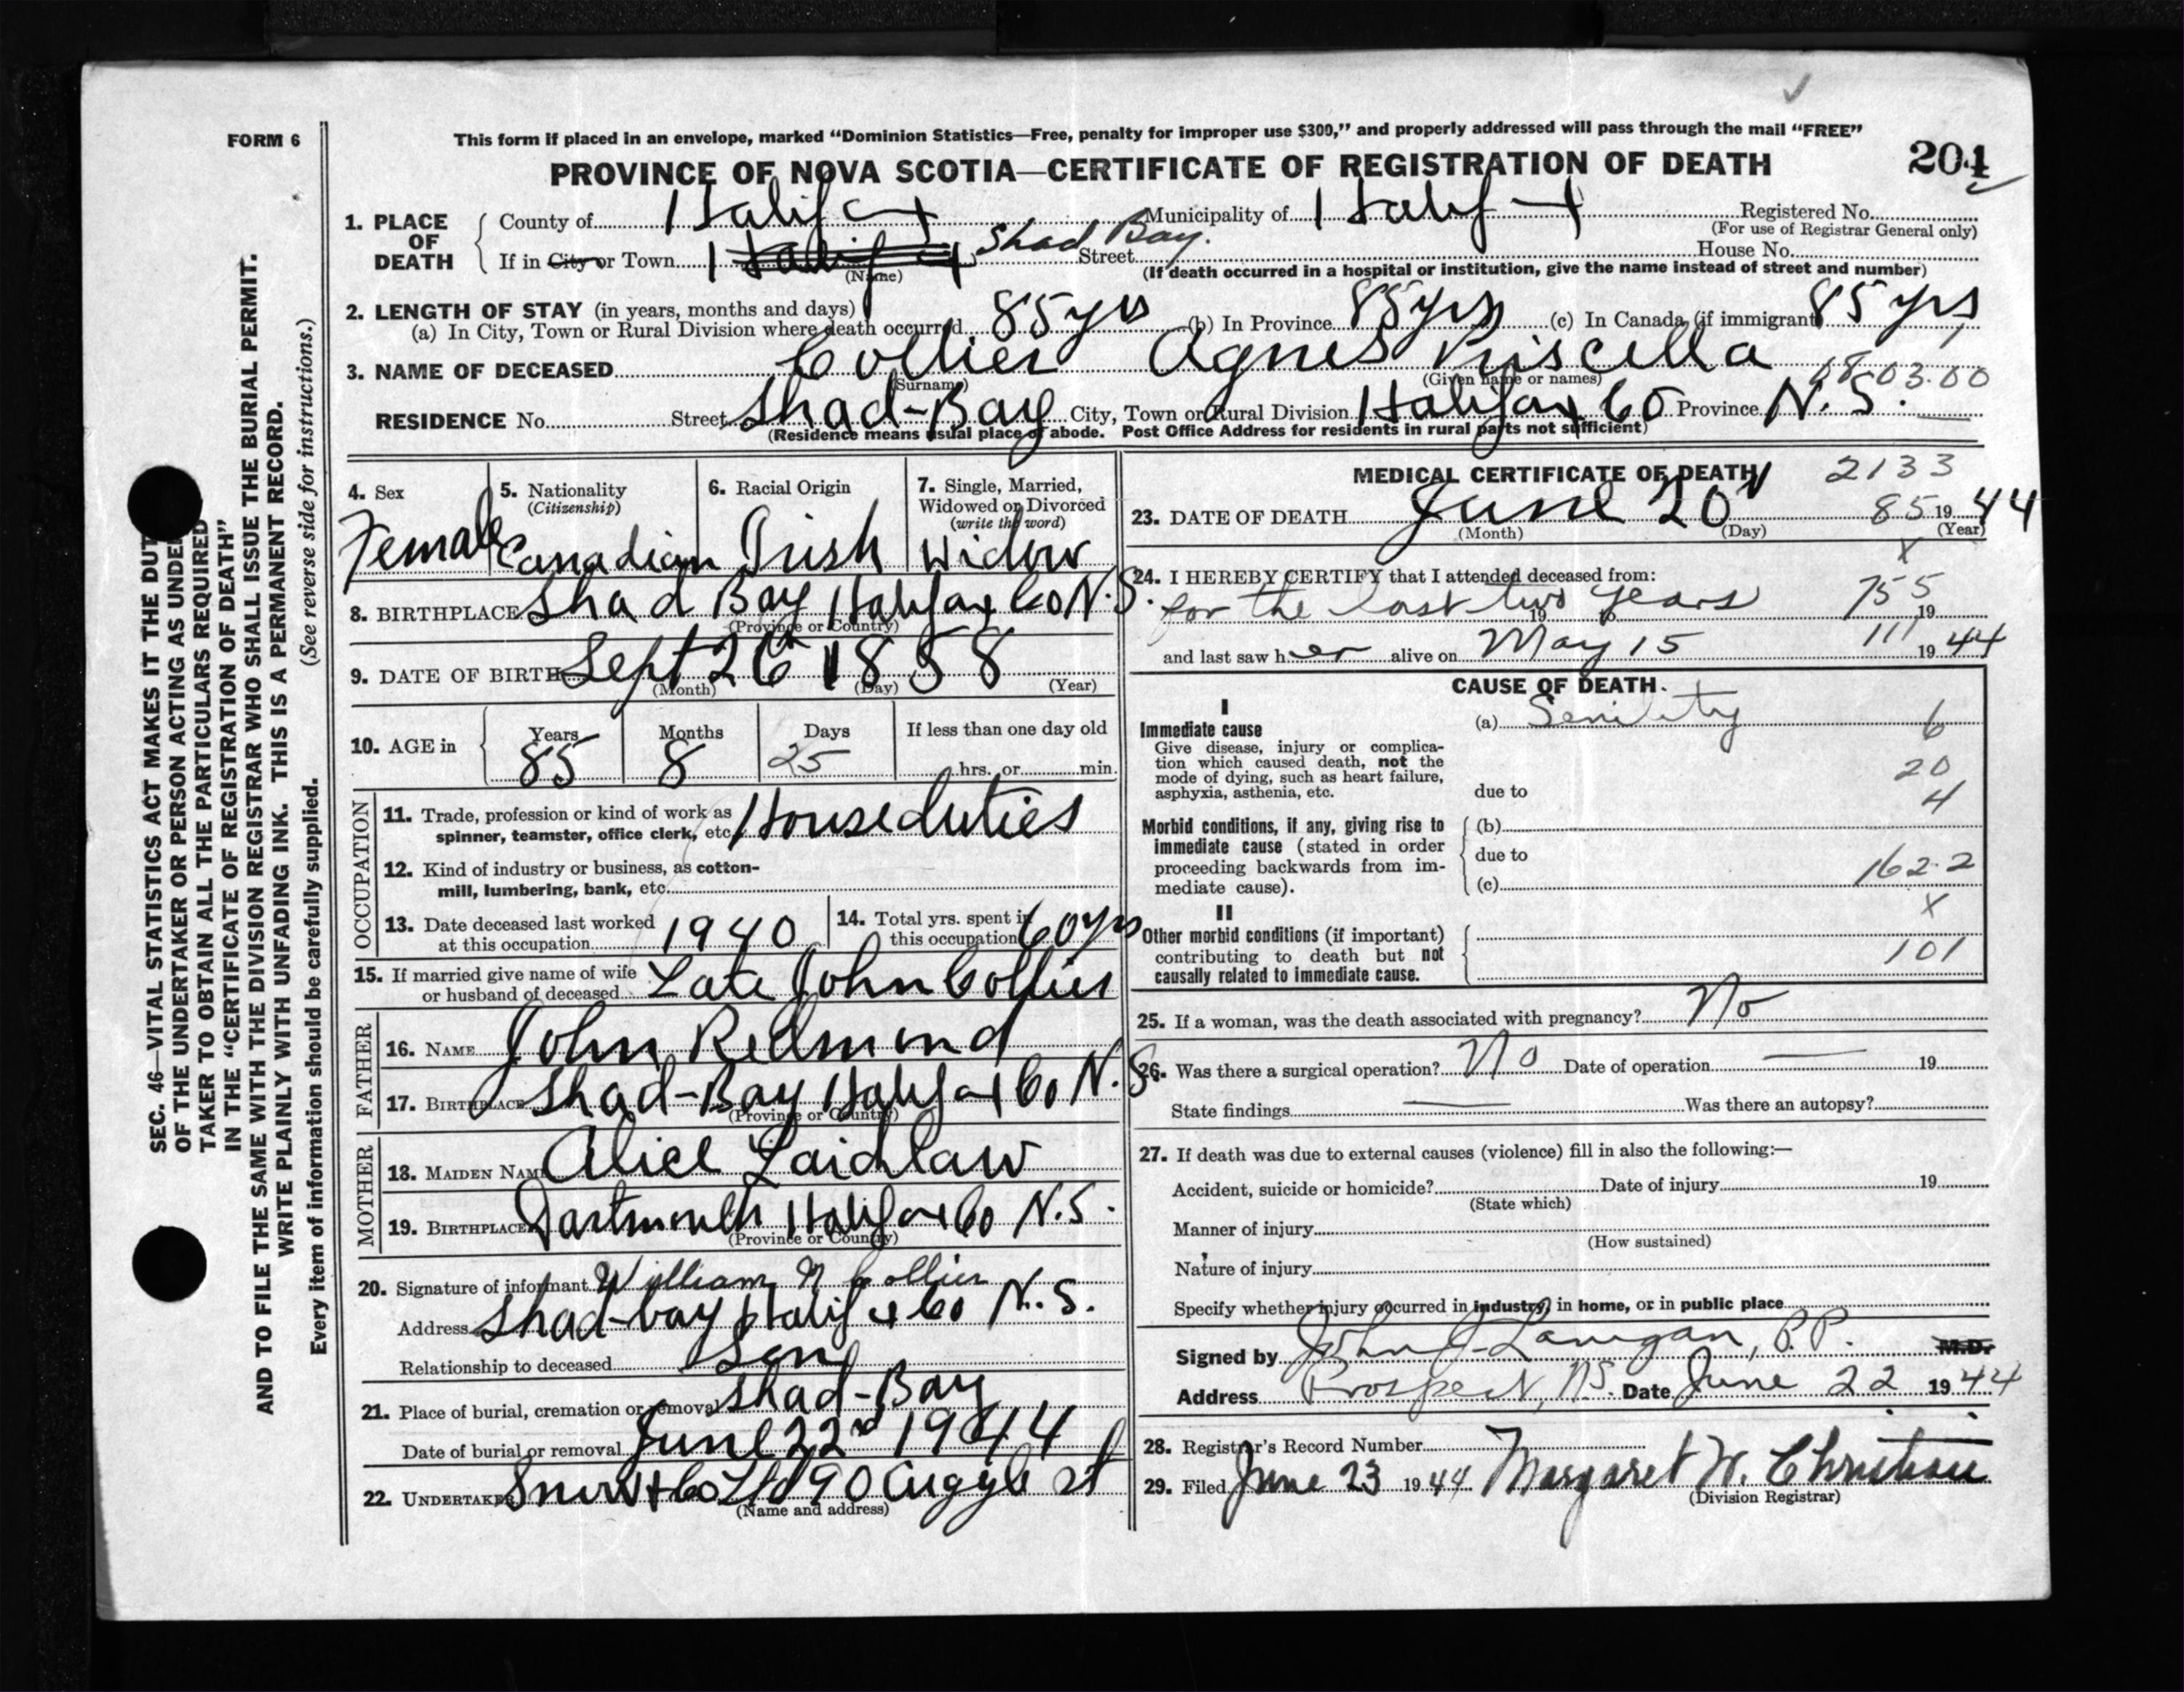 FORM 6
This form if placed in an envelope, marked “Dominion Statistics—Free, penalty for improper use $300,” and properly addressed will pass through the mail “FREE”
PROVINCE OF NOVA SCOTIA—CERTIFICATE OF REGISTRATION OF DEATH
204
SEC. 46—VITAL STATISTICS ACT MAKES IT THE DUT
OF THE UNDERTAKER OR PERSON ACTING AS UNDE
TAKER TO OBTAIN ALL THE PARTICULARS REQUIRED
IN THE “CERTIFICATE OF REGISTRATION OF DEATH”
AND TO FILE THE SAME WITH THE DIVISION REGISTRAR WHO SHALL ISSUE THE BURIAL PERMIT.
WRITE PLAINLY WITH UNFADING INK. THIS IS A PERMANENT RECORD.
Every item of information should be carefully supplied. (See reverse side for instructions.)
1. PLACE OF DEATH
County of Halifax Municipality of Halifax Registered No.
(For use of Registrar General only)
If in City or Town Halifax Shad Bay. Street House No.
(Name) (If death occurred in a hospital or institution, give the name instead of street and number)
2. LENGTH OF STAY (in years, months and days)
(a) In City, Town or Rural Division where death occurred 85 yrs (b) In Province 85 yrs (c) In Canada (if immigrant) 85 yrs
3. NAME OF DECEASED Collier Agnes Priscella
(Surname) (Given name or names) 18.03.00
RESIDENCE No. Street Shad-Bay City, Town or Rural Division Halifax Co Province N.S.
(Residence means usual place of abode. Post Office Address for residents in rural parts not sufficient)
4. Sex
Female
5. Nationality
(Citizenship)
Canadian
6. Racial Origin
Irish
7. Single, Married,
Widowed or Divorced
(write the word)
Widow
8. BIRTHPLACE Shad Bay Halifax Co N.S.
(Province or Country)
9. DATE OF BIRTH Sept 26 1858
(Month) (Day) (Year)
10. AGE in
Years 85
Months 8
Days 25
If less than one day old
hrs. or min.
OCCUPATION
11. Trade, profession or kind of work as
spinner, teamster, office clerk, etc. House duties
12. Kind of industry or business, as cotton-
mill, lumbering, bank, etc.
13. Date deceased last worked
at this occupation 1940
14. Total yrs. spent in
this occupation 60 yrs
15. If married give name of wife
or husband of deceased Late John Collier
FATHER
16. NAME John Redmond
17. BIRTHPLACE Shad-Bay Halifax Co N.S.
(Province or Country)
MOTHER
18. MAIDEN NAME Alice Laidlaw
19. BIRTHPLACE Dartmouth Halifax Co N.S.
(Province or Country)
20. Signature of informant William N Collier
Address Shad-bay Halifax Co N.S.
Relationship to deceased Son
21. Place of burial, cremation or removal Shad-Bay
Date of burial or removal June 22nd 1944
22. UNDERTAKER Snow & Co Ltd 90 Argyle St
(Name and address)
MEDICAL CERTIFICATE OF DEATH
2133
23. DATE OF DEATH June 20 85 1944
(Month) (Day) (Year)
x
24. I HEREBY CERTIFY that I attended deceased from:
for the last two years 755
19 to 19
and last saw her alive on May 15 111 1944
CAUSE OF DEATH.
I
Immediate cause
Give disease, injury or complica-
tion which caused death, not the
mode of dying, such as heart failure,
asphyxia, asthenia, etc.
(a) Senility 6
20
due to
4
Morbid conditions, if any, giving rise to
immediate cause (stated in order
proceeding backwards from im-
mediate cause).
(b)
due to
(c) 162.2
x
II
Other morbid conditions (if important)
contributing to death but not
causally related to immediate cause.
101
25. If a woman, was the death associated with pregnancy? No
26. Was there a surgical operation? No Date of operation — 19
State findings — Was there an autopsy?
27. If death was due to external causes (violence) fill in also the following:—
Accident, suicide or homicide? Date of injury 19
(State which)
Manner of injury
(How sustained)
Nature of injury
Specify whether injury occurred in industry, in home, or in public place
Signed by John J. Lanigan, P.P. M.D.
Address Prospect, NS. Date June 22 1944
28. Registrar's Record Number
29. Filed June 23 1944 Margaret W. Christian
(Division Registrar)